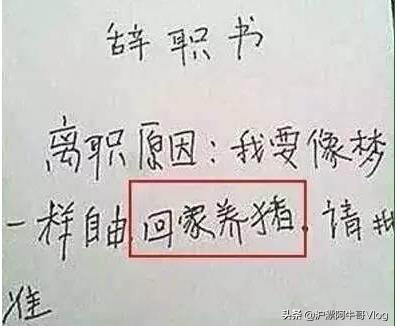 辞职书
离职原因：我要像梦
一样自由，回家养猪。请批
准
头条 @沪漂阿牛哥Vlog